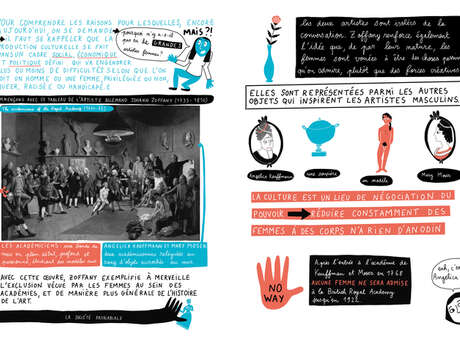 POUR COMPRENDRE LES RAISONS POUR LESQUELLES, ENCORE
AUJOURD'HUI, ON SE DEMANDE
IL FAUT SE RAPPELER QUE LA
PRODUCTION CULTURELLE SE FAIT
DANS UN CADRE SOCIAL, ÉCONOMIQUE
ET POLITIQUE DÉFINI QUI VA ENGENDRER
PLUS OU MOINS DE DIFFICULTÉS SELON QUE L'ON
SOIT UN HOMME OU UNE FEMME, PRIVILÉGIÉE OU NON,
QUEER, RACISÉE OU HANDICAPÉE
Mais?!
pourquoi n'y a-t-il
pas eu de GRANDES
artistes femmes?
COMMENÇONS AVEC CE TABLEAU DE L'ARTISTE ALLEMAND JOHANN ZOFFANY (1733-1810)
The academicians of the Royal Academy
LES ACADÉMICIENS:
ANGELICA KAUFFMANN ET MARY MOSER:
deux académiciennes reléguées au
rang d'objets
AVEC CETTE ŒUVRE, ZOFFANY EXEMPLIFIE À MERVEILLE
L'EXCLUSION VÉCUE PAR LES FEMMES AU SEIN DES
ACADÉMIES, ET DE MANIÈRE PLUS GÉNÉRALE DE L'HISTOIRE
DE L'ART.
LA SOCIÉTÉ PATRIARCALE
les deux artistes sont exilées de la
conversation. Zoffany renforce également
l'idée que, de par leur nature, les
femmes sont vouées à être des choses
qu'on admire, plutôt que des forces créatives
ELLES SONT REPRÉSENTÉES PARMI LES AUTRES
OBJETS QUI INSPIRENT LES ARTISTES MASCULINS.
Angelica Kauffmann
une soupière
un modèle
Mary Moser
LA CULTURE EST UN LIEU DE NÉGOCIATION DU
POUVOIR RÉDUIRE CONSTAMMENT DES
FEMMES À DES CORPS N'A RIEN D'ANODIN
NO
WAY
Après l'entrée à l'académie de
Kauffmann et Moser en 1768
AUCUNE FEMME NE SERA ADMISE
à la British Royal Academy
jusqu'en 1922.
Angelica